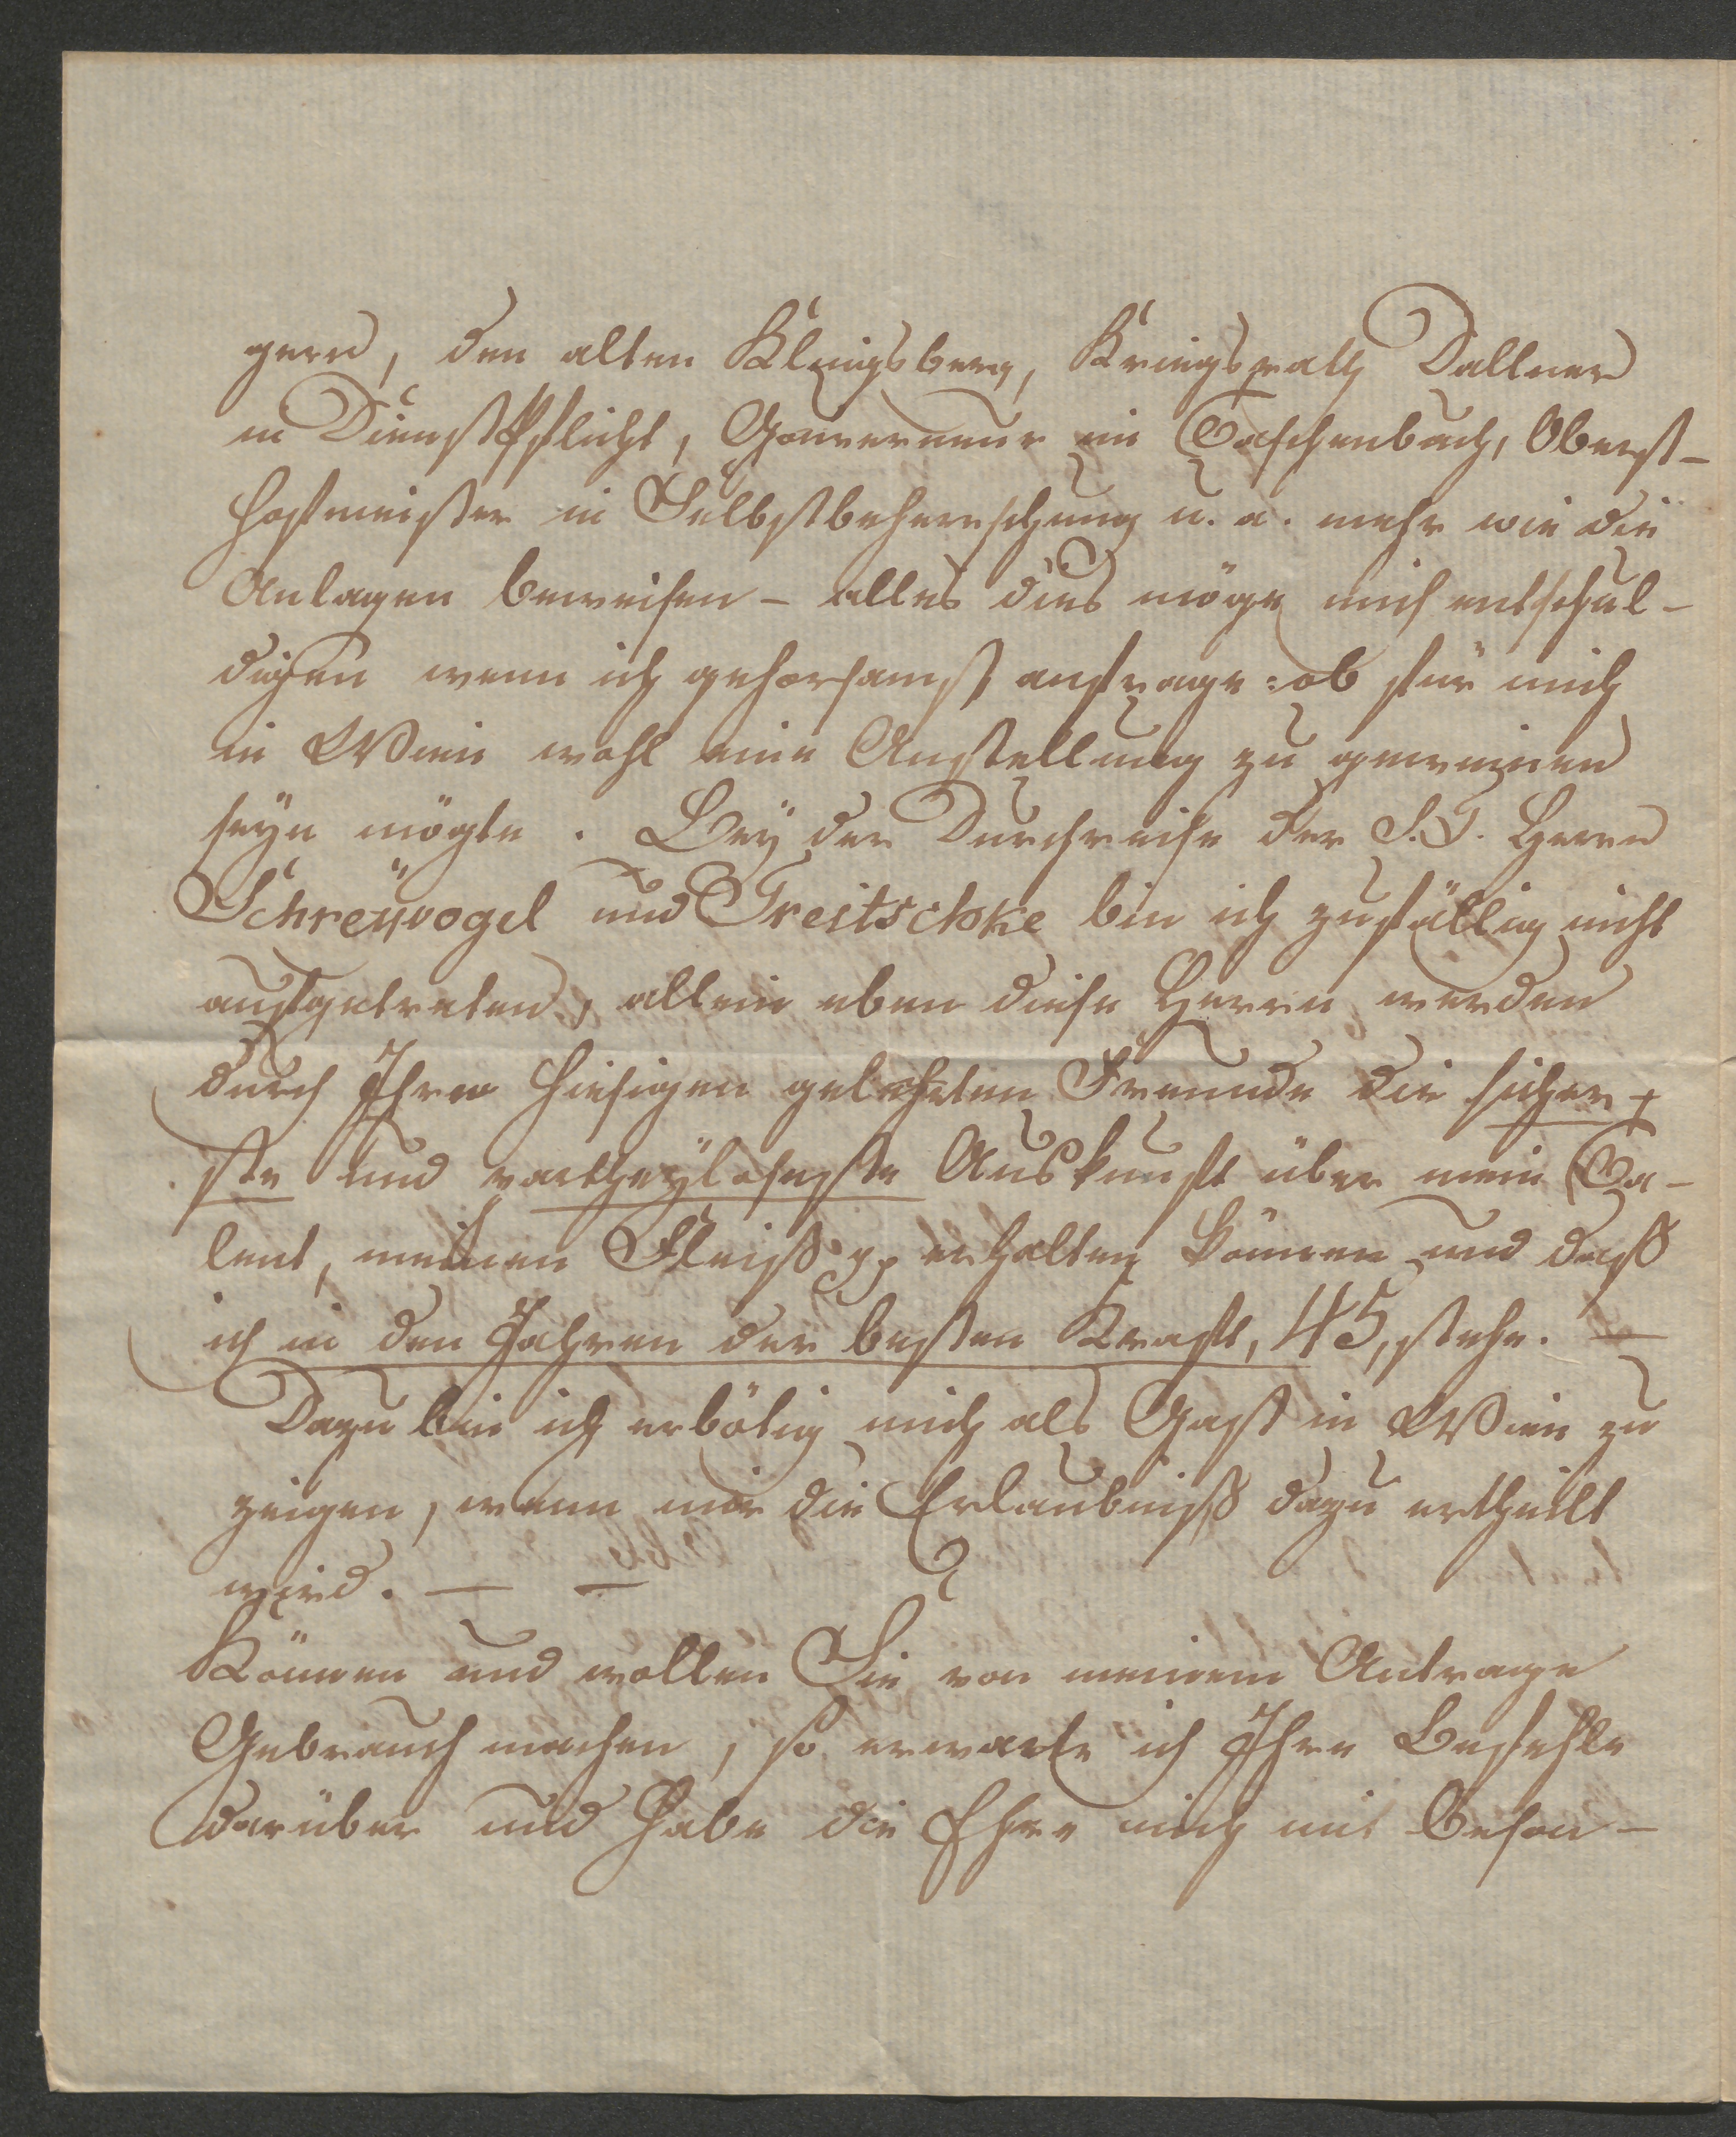 gern, den alten Klingsberg, Kriegsrath Dallner
in Dienstpflicht, Gouverneur im Taschenbuch, Oberst-
hofmeister in Selbstbeherrschung u. a. mehr wie die
Anlagen beweisen – alles dies möge mich entschul-
digen wenn ich gehorsamst anfrage: ob für mich
in Wien wohl eine Anstellung zu gewinnen
seyn mögte. Bey der Durchreise der P. T. Herrn
Schreÿvogel und Treitschke bin ich zufällig nicht
aufgetreten, allein eben diese Herrn werden
durch Ihre hiesigen gelehrten Freunde die sicher-
ste und partheylosesste Auskunft über mein Ta-
lent, meinen Fleiß pp erhalten können und daß
ich in den Jahren der besten Kraft, 45, stehe. —
Dazu bin ich erbötig mich als Gast in Wien zu
zeigen, wenn mir die Erlaubniß dazu ertheilt
wird. — —
Können und wollen Sie von meinem Antrage
Gebrauch machen, so erwarte ich Ihre Befehle
darüber und habe die Ehre mich mit Beson-